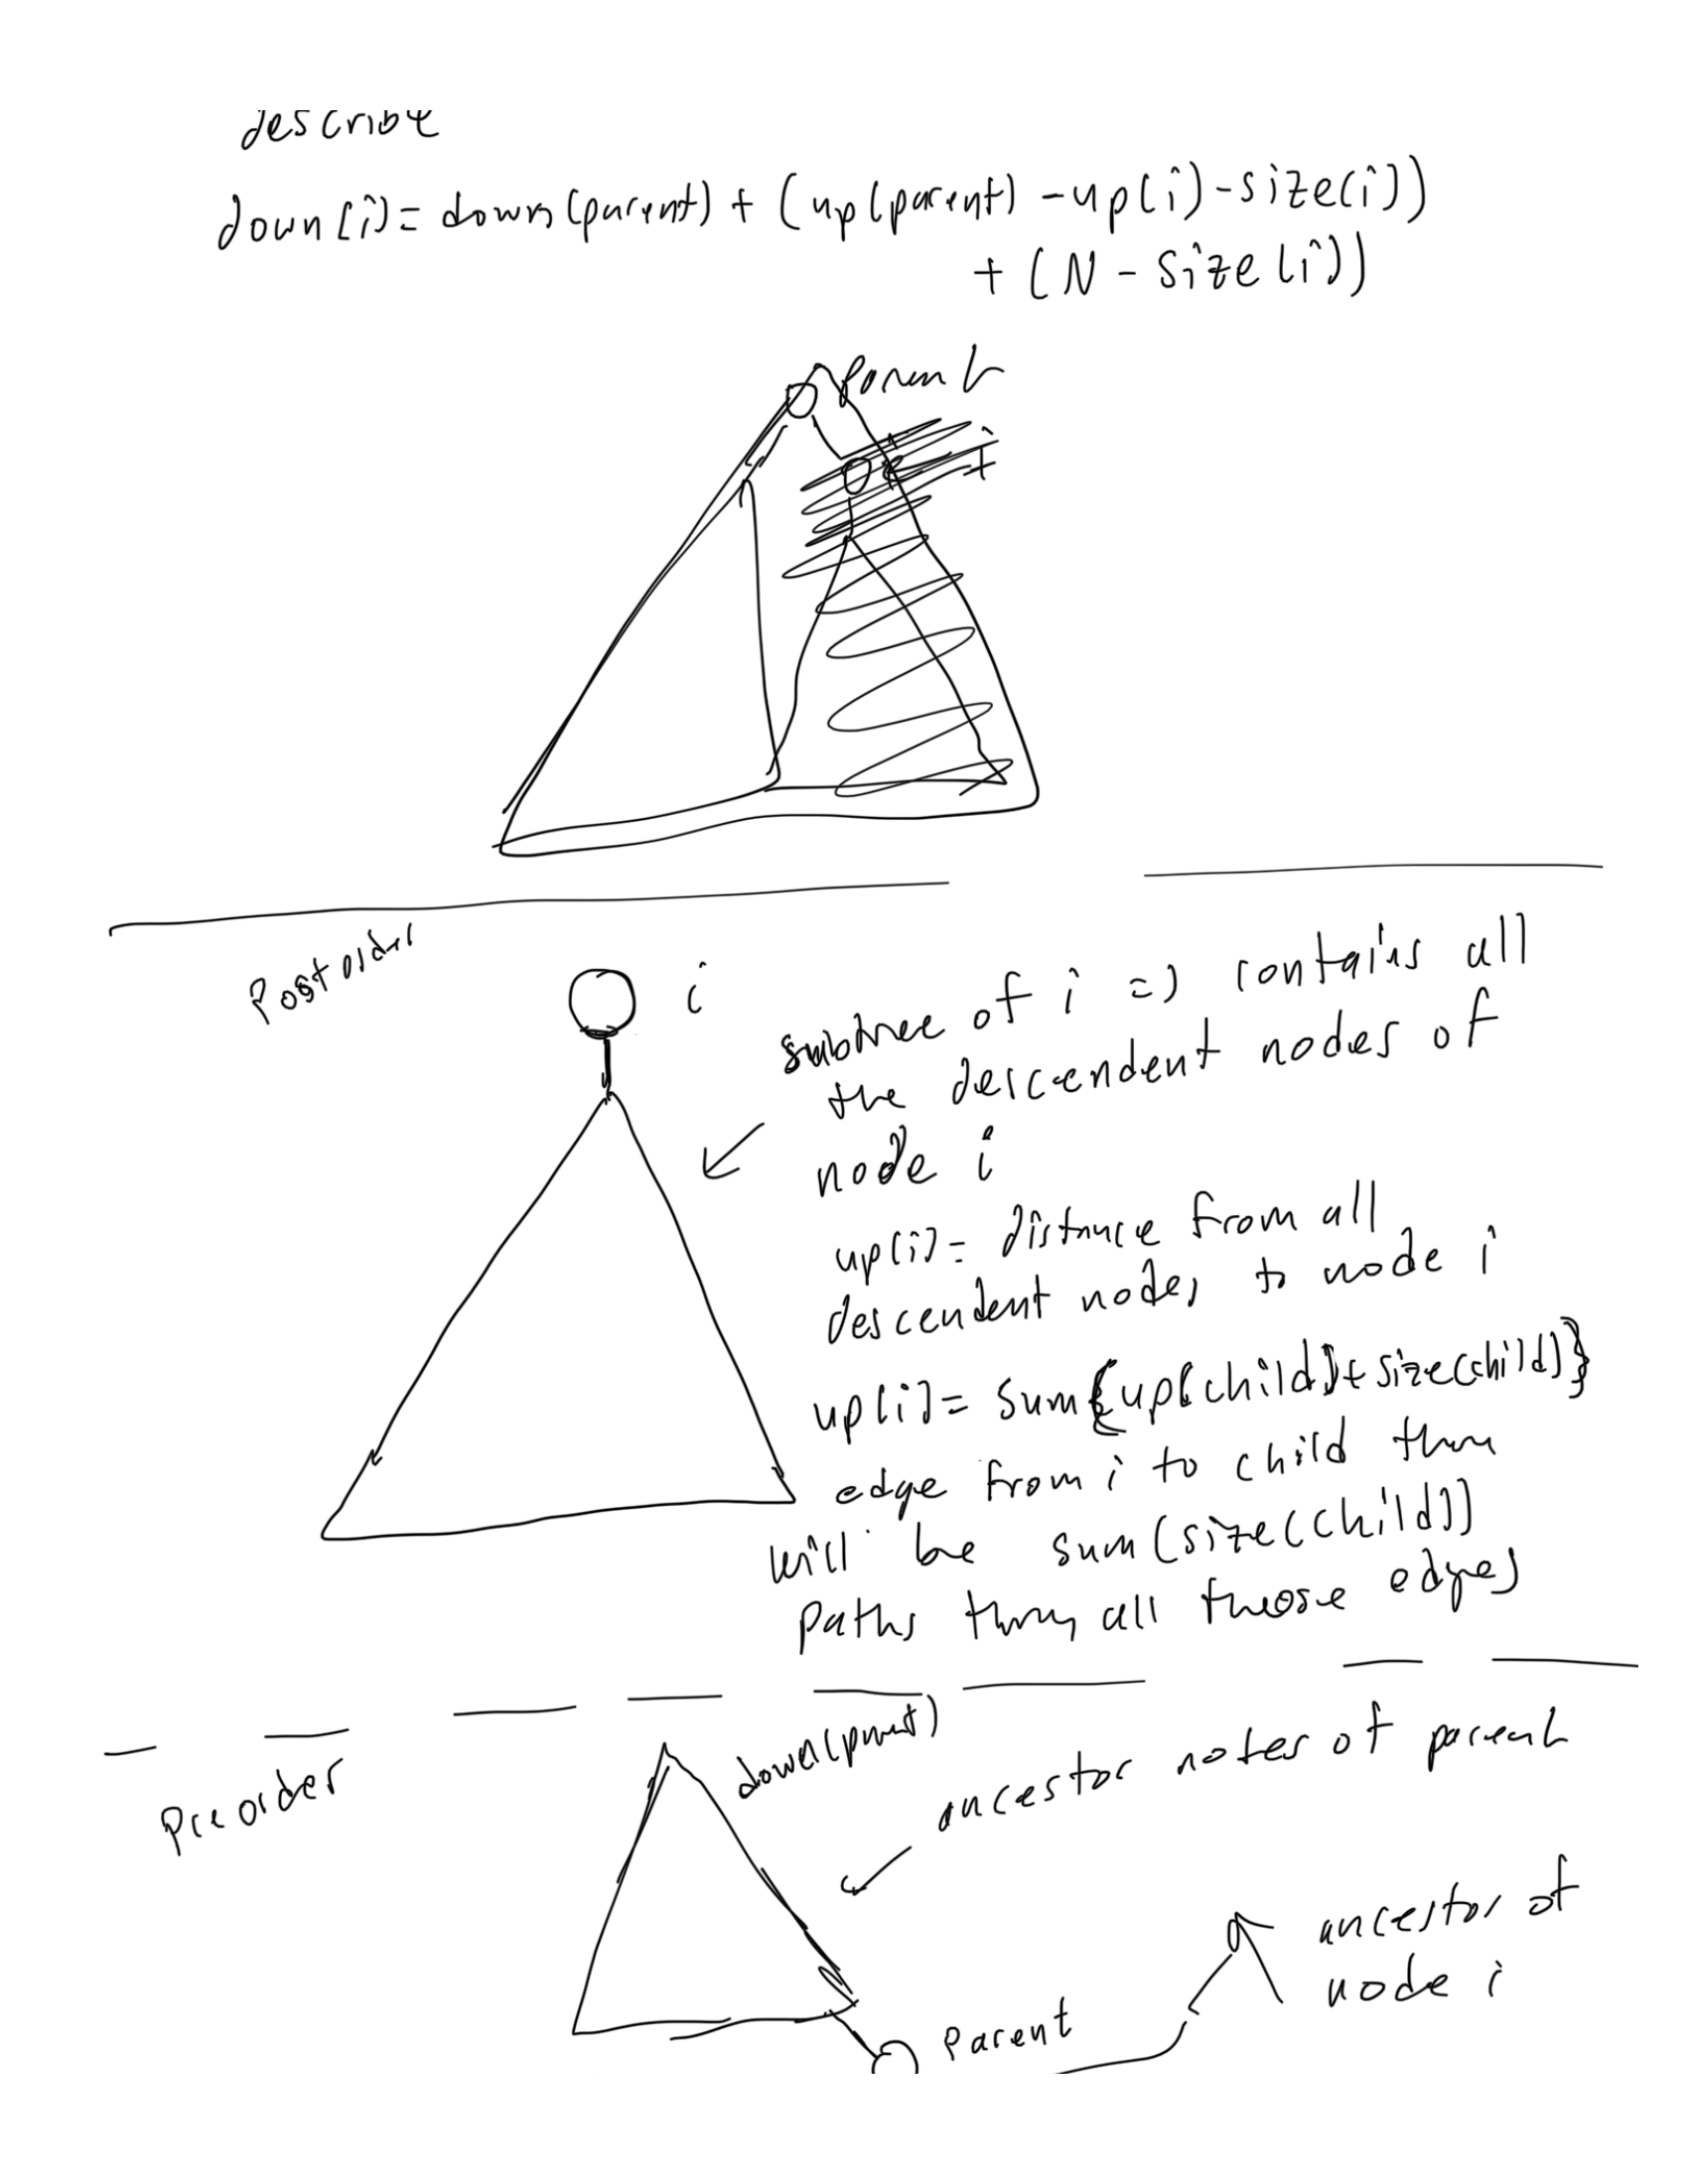 describe
down[i]= down(parent) + (up(parent) -up(i)-size(i))
+ (N - size(i))
parent
i
Postorder
i
subtree of i => contains all
the descendent nodes of
node i
up[i]= distance from all
descendent nodes to node i
up[i]= sum{up[child]+size(child)}
edge from i to child then
will be sum(size(child))
paths thru all those edges
Preorder
down(parent)
ancestor notes of parent
ancestor of
node i
Parent